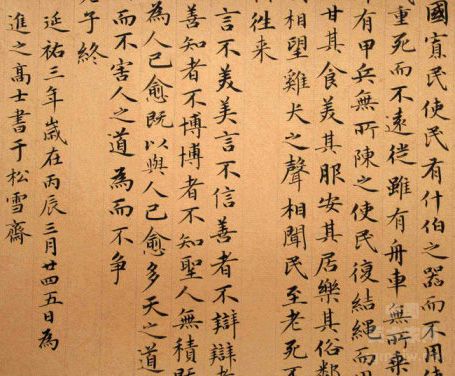 國寡民使民有什伯之器而不用使
重死而不遠徙雖有舟車無所乗
有甲兵無所陳之使民復結繩而用
甘其食美其服安其居樂其俗鄰
相望雞犬之聲相聞民至老死不
徃来
言不美美言不信善者不辯辯者
善知者不博博者不知聖人無積既
為人己愈既以與人己愈多天之道
而不害人之道為而不争
子終
延祐三年歲在丙辰三月廿四五日為
進之髙士書于松雪齋